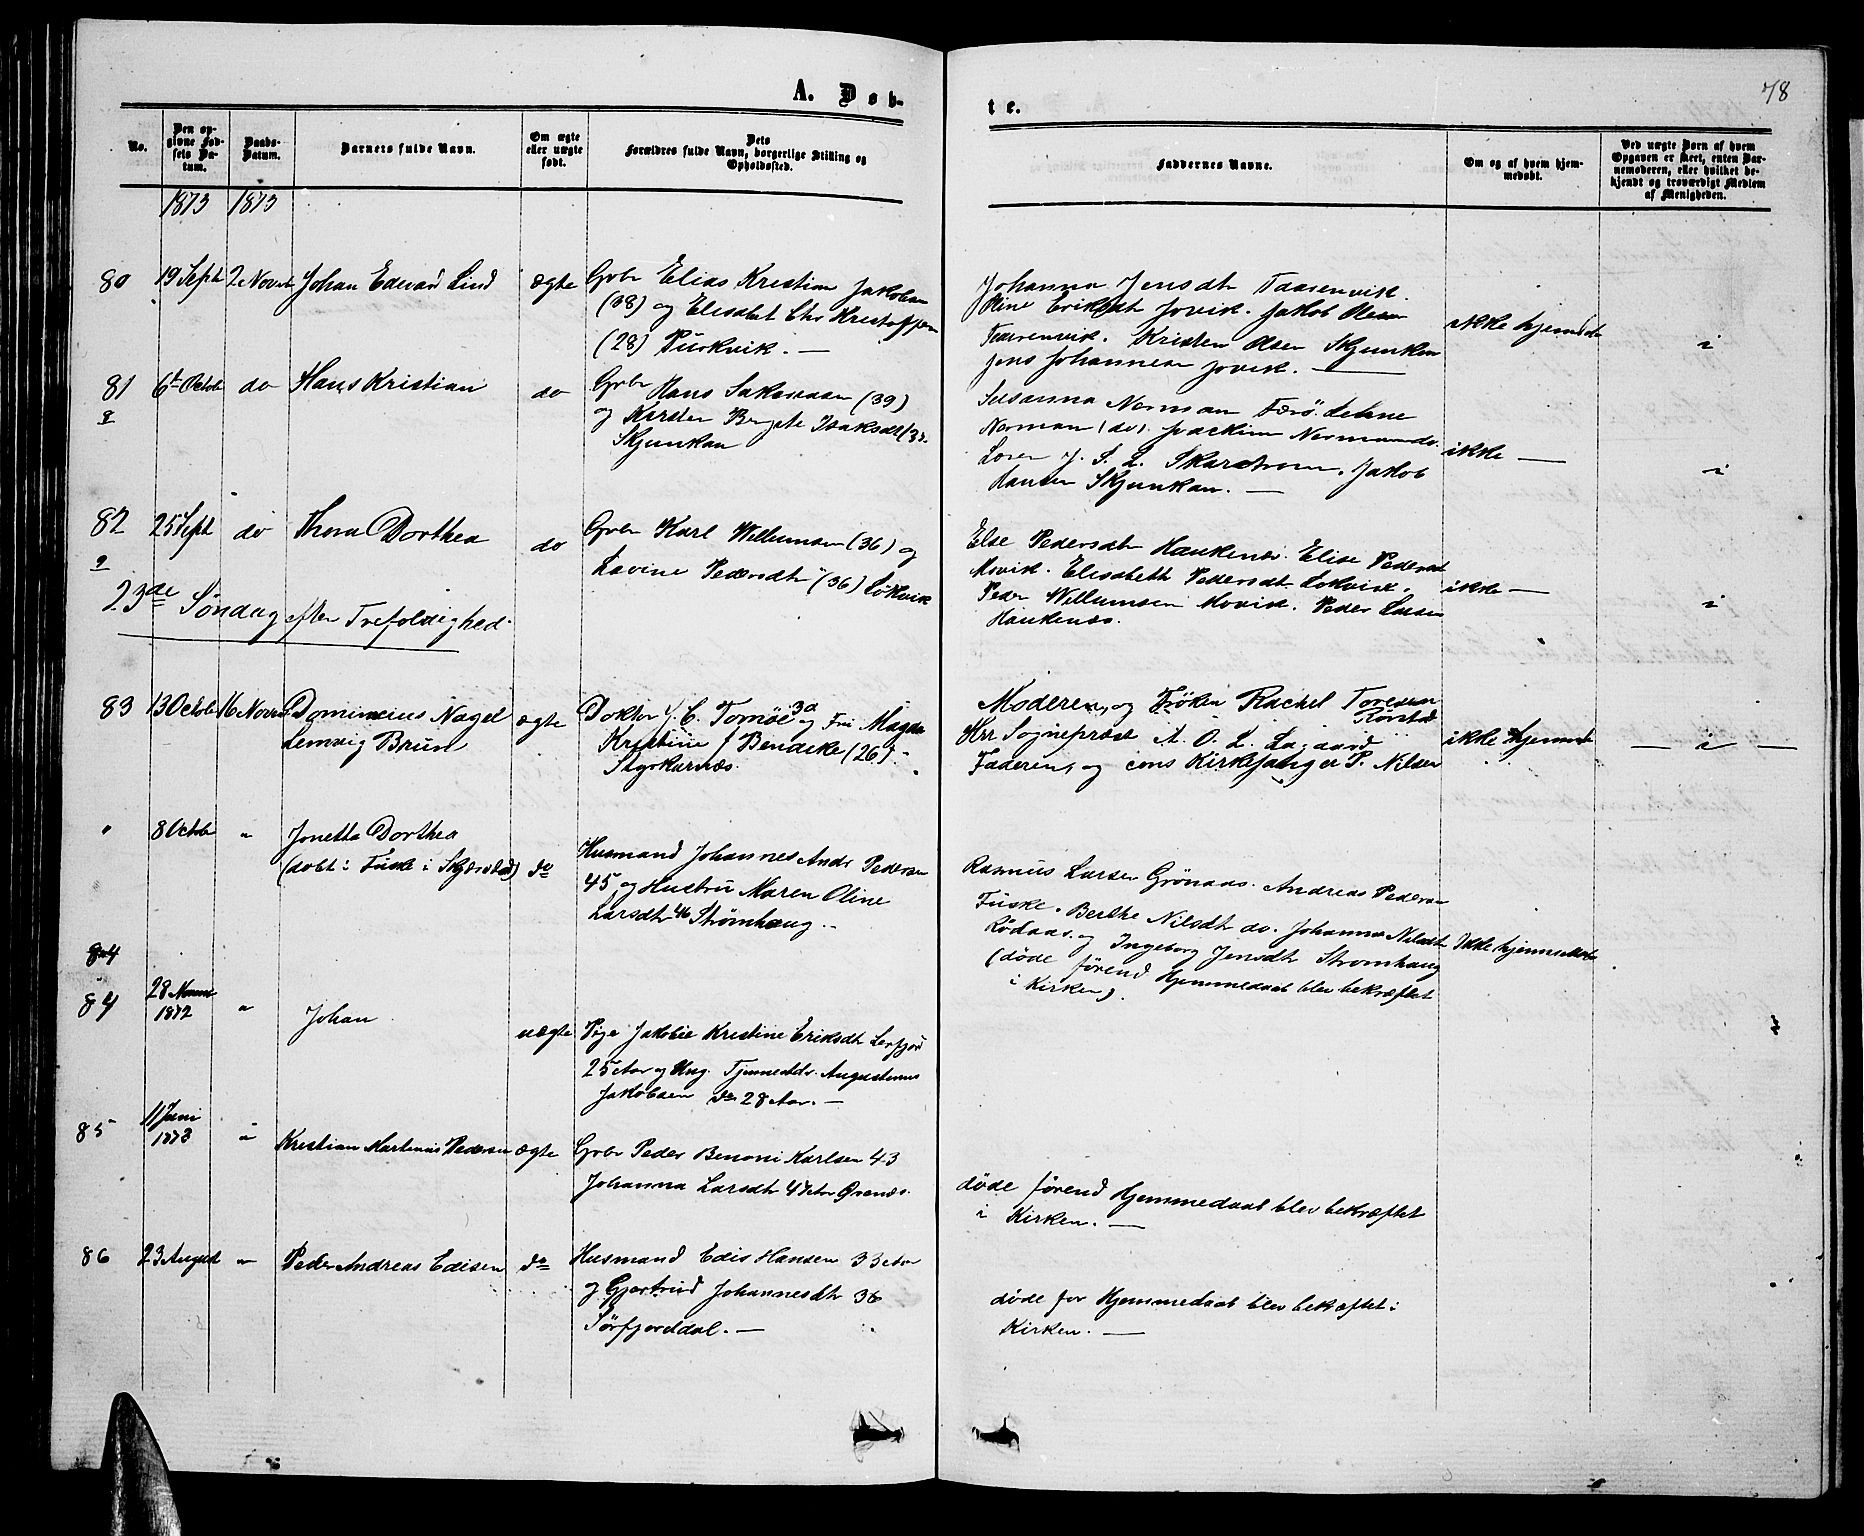 A. Døb-
te.
78
No.
Den op-
givne Fød-
sels Da-
tum.
Daabs-
Datum.
Barnets fulde Navn.
Om ægte
eller uægte
født.
Dets
Forældres fulde Navn, borgerlige Stilling og
Opholdssted.
Faddernes Navne.
Om og af hvem hjem-
medøbt.
Ved uægte Børn af hvem
Opgaven er skeet, enten Bar-
nemoderen, eller hvilket be-
kjendt og troværdigt Medlem
af Menigheden.
1873 1873
80 19 Septr 2 Novbr Johan Edevard Lind ægte Gbr Elias Kristian Jakobsen
(38) og Elisabet Chr Kristoffersen
(28) Purkvik. —
Johanna Jensdtr Taarenvik.
Oline Eriksdt Jøvik. Jakob Olesen
Taarenvik. Kristen Olsen Skjunken
Jens Johannesen Jøvik. —
ikke hjemdøbt
i
81 6te Octobr do Hans Kristian do Gbr Hans Sakariasen (39)
og Karsten Bergete Isaksdt (3
Skjunkan
Susanna Norman Færø. Lehne
Norman (do). Joachim Norman do.
Loren J. S. L. Skarstrom. Jakob
Hansen Skjunkan. —
ikke —
i
82 25 Septr do Thora Dorthea do Gbr Karl Willumsen (36) og
Lavine Pedersdtr (36) Løkvik
Else Pedersdtr Haukenæs. Elise Pedersdt
Movik. Elisabeth Pedersdt Løkvik.
Peder Willumsen Movik. Peder Larsen
Haukenæs.
ikke —
i
23de Søndag efter Trefoldighed.
83 13 Octobr 16 Novbr Dominicus Nagel
Lemvig Brun
ægte Doktor J. C. Tornöe 30 og Fru Magda
Kristine f Bendeke (26)
Styrkesnæs.
Moderen, og Frøken Rachel Toresen
Rørstad
Hrr Sognepræst A. O. L. Lagaard
Faderen, og cons Kirkesanger P. Nilsen
ikke hjemmed
— i —
" 8 Octobr " Jonetta Dorthea
(døbt i Fuske i Skjerstad) do
Husmand Johannes Andr Pedersen
45 og Hustru Maren Oline
Larsdtr 46 Strømhaug.
Rasmus Larsen Grönaas. Andreas Pedersen
Fuske. Berthe Nilsdtr do. Johanna Nilsdtr
Rödaas. og Ingeborg Jensdtr Stromhaug
(døde førend Hjemmedaab blev bekræftet
i Kirken).
Ikke hjemmedøbt
84
84 28
1872 " Johan uægte Pige Jakobie Kristine Eriksdt Lerfjord
25 Aar og Ung. Tjenestedr. Augustinus
Jakobsen do 28 Aar. —
85 11 Juni
1873 " Kristian Martinus Pedersen ægte Gbr Peder Benoni Karlsen 43
Johanna Larsdtr 47 Aar Ørenæs.
døde førend Hjemmedaab blev bekræftet
i Kirken. —
86 23 August " Peder Andreas Edisen do Husmand Edis Hansen 33 Aar
og Gjertrud Johannesdtr 36
Sørfjorddal. —
døde før Hjemmedaab blev bekæftet i
Kirken. —